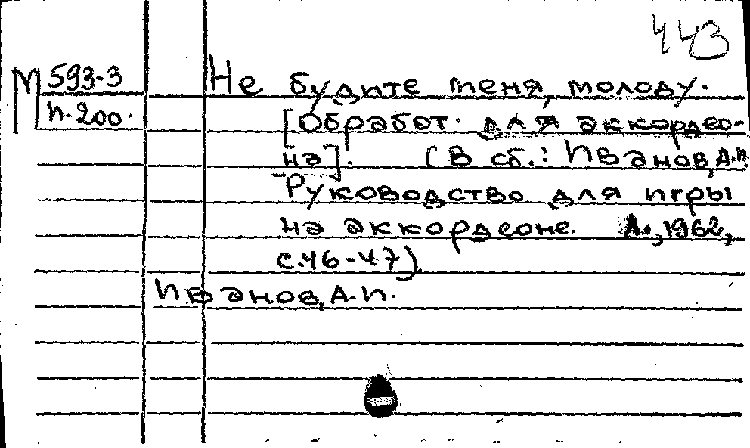 443
М 593-3
И-200.
Не будите меня, молоду.
[Обработ. для аккордео-
на]. (В сб.: Иванов, А.П.
Руководство для игры
на аккордеоне. Л., 1962,
с.46-47)
Иванов, А.П.